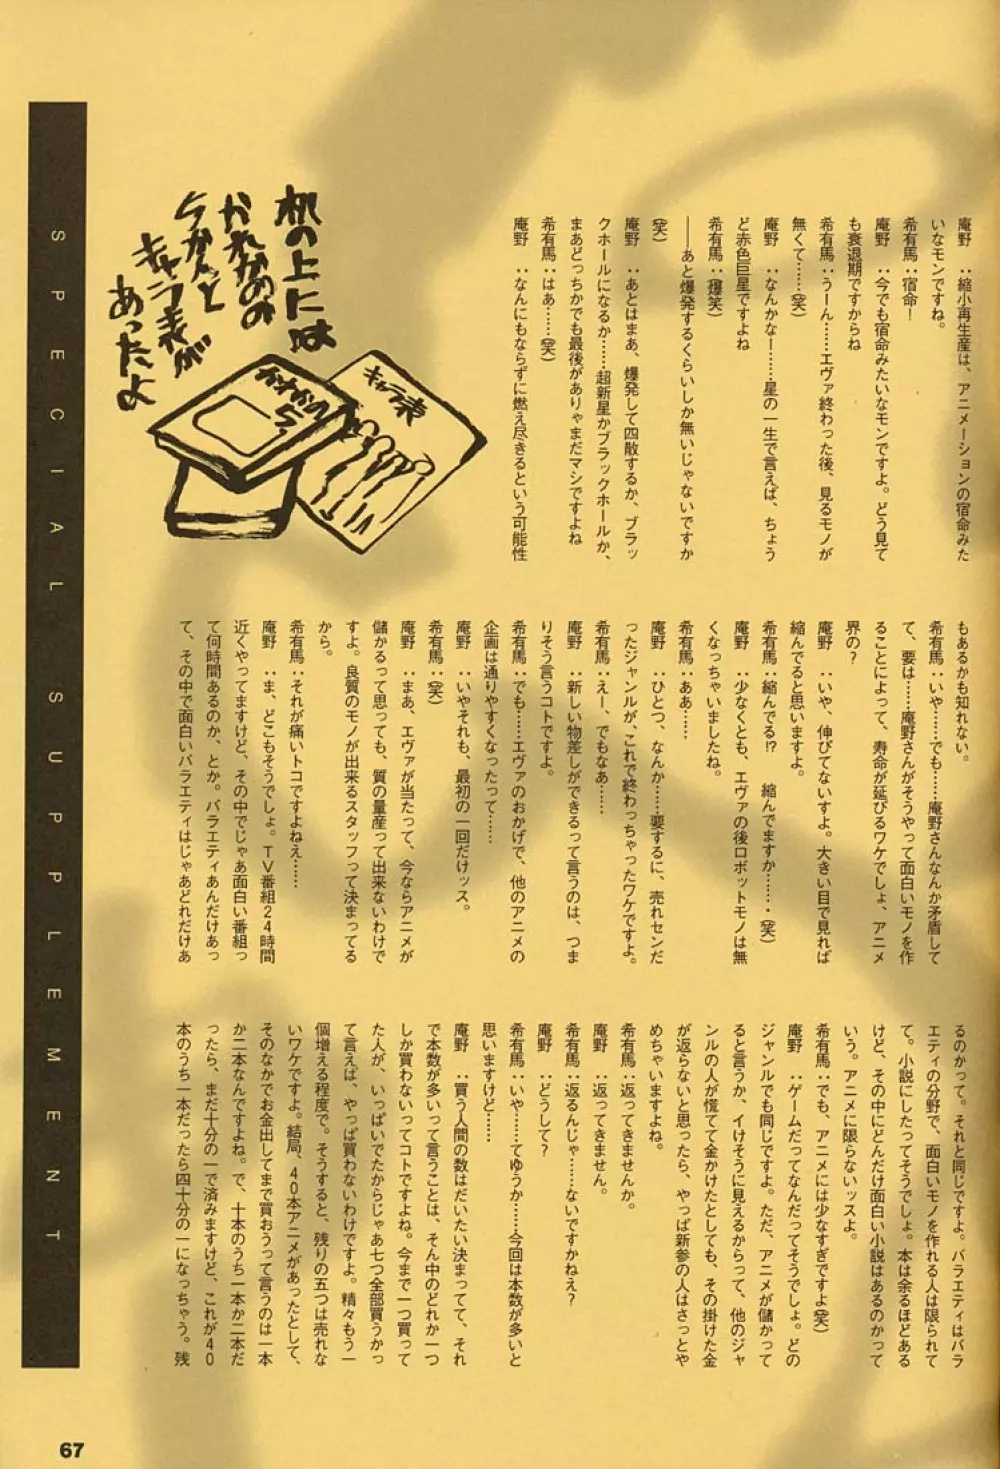 庵野　：縮小再生産は、アニメーションの宿命みた
いなモンですね。
希有馬：宿命！
庵野　：今でも宿命みたいなモンですよ。どう見て
も衰退期ですからね
希有馬：うーん……エヴァ終わった後、見るモノが
無くて……(笑)
庵野　：なんかなー……星の一生で言えば、ちょう
ど赤色巨星ですよね
希有馬：(爆笑)
――あと爆発するくらいしか無いじゃないですか
(笑)
庵野　：あとはまあ、爆発して四散するか、ブラッ
クホールになるか……超新星かブラックホールか、
まあどっちかでも最後がありゃまだマシですよね
希有馬：はあ……(笑)
庵野　：なんにもならずに燃え尽きるという可能性
机の上には
かれかのの
キャラ表が
あったよ
キャラ表
もあるかも知れない。
希有馬：いや……でも……庵野さんなんか矛盾して
て、要は……庵野さんがそうやって面白いモノを作
ることによって、寿命が延びるワケでしょ、アニメ
界の？
庵野　：いや、伸びてないすよ。大きい目で見れば
縮んでると思いますよ。
希有馬：縮んでる!?　縮んでますか……・(笑)
庵野　：少なくとも、エヴァの後ロボットモノは無
くなっちゃいましたね。
希有馬：ああ……
庵野　：ひとつ、なんか……要するに、売れセンだ
ったジャンルが、これで終わっちゃったワケですよ。
希有馬：えー、でもなあ……
庵野　：新しい物差しができるって言うのは、つま
りそう言うコトですよ。
希有馬：でも……エヴァのおかげで、他のアニメの
企画は通りやすくなったって……
庵野　：いやそれも、最初の一回だけッス。
希有馬：(笑)
庵野　：まあ、エヴァが当たって、今ならアニメが
儲かるって思っても、質の量産って出来ないわけで
すよ。良質のモノが出来るスタッフって決まってる
から。
希有馬：それが痛いトコですよねえ……
庵野　：ま、どこもそうでしょ。ＴＶ番組２４時間
近くやってますけど、その中でじゃあ面白い番組っ
て何時間あるのか、とか。バラエティあんだけあっ
て、その中で面白いバラエティはじゃあどれだけあ
るのかって。それと同じですよ。バラエティはバラ
エティの分野で、面白いモノを作れる人は限られて
て。小説にしたってそうでしょ。本は余るほどある
けど、その中にどんだけ面白い小説はあるのかって
いう。アニメに限らないッスよ。
希有馬：でも、アニメには少なすぎですよ(笑)
庵野　：ゲームだってなんだってそうでしょ。どの
ジャンルでも同じですよ。ただ、アニメが儲かって
ると言うか、イけそうに見えるからって、他のジャ
ンルの人が慌てて金かけたとしても、その掛けた金
が返らないと思ったら、やっぱ新参の人はさっとや
めちゃいますよね。
希有馬：返ってきませんか。
庵野　：返ってきません。
希有馬：返るんじゃ……ないですかねえ？
庵野　：どうして？
希有馬：いや……てゆうか……今回は本数が多いと
思いますけど……
庵野　：買う人間の数はだいたい決まってて、それ
で本数が多いって言うことは、そん中のどれか一つ
しか買わないってコトですよね。今まで一つ買って
た人が、いっぱいでたからじゃあ七つ全部買うかっ
て言えば、やっぱ買わないわけですよ。精々もう一
個増える程度で。そうすると、残りの五つは売れな
いワケですよ。結局、４０本アニメがあったとして、
そのなかでお金出してまで買おうって言うのは一本
か二本なんですよね。で、十本のうち一本か二本だ
ったら、まだ十分の一で済みますけど、これが４０
本のうち一本だったら四十分の一になっちゃう。残
SPECIAL SUPPLEMENT
67